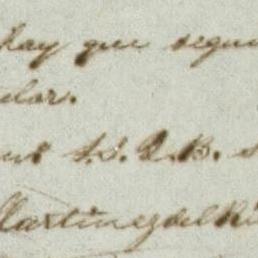 hay que segui
ular.
S. S. Q. B. s
Martinez del Ri